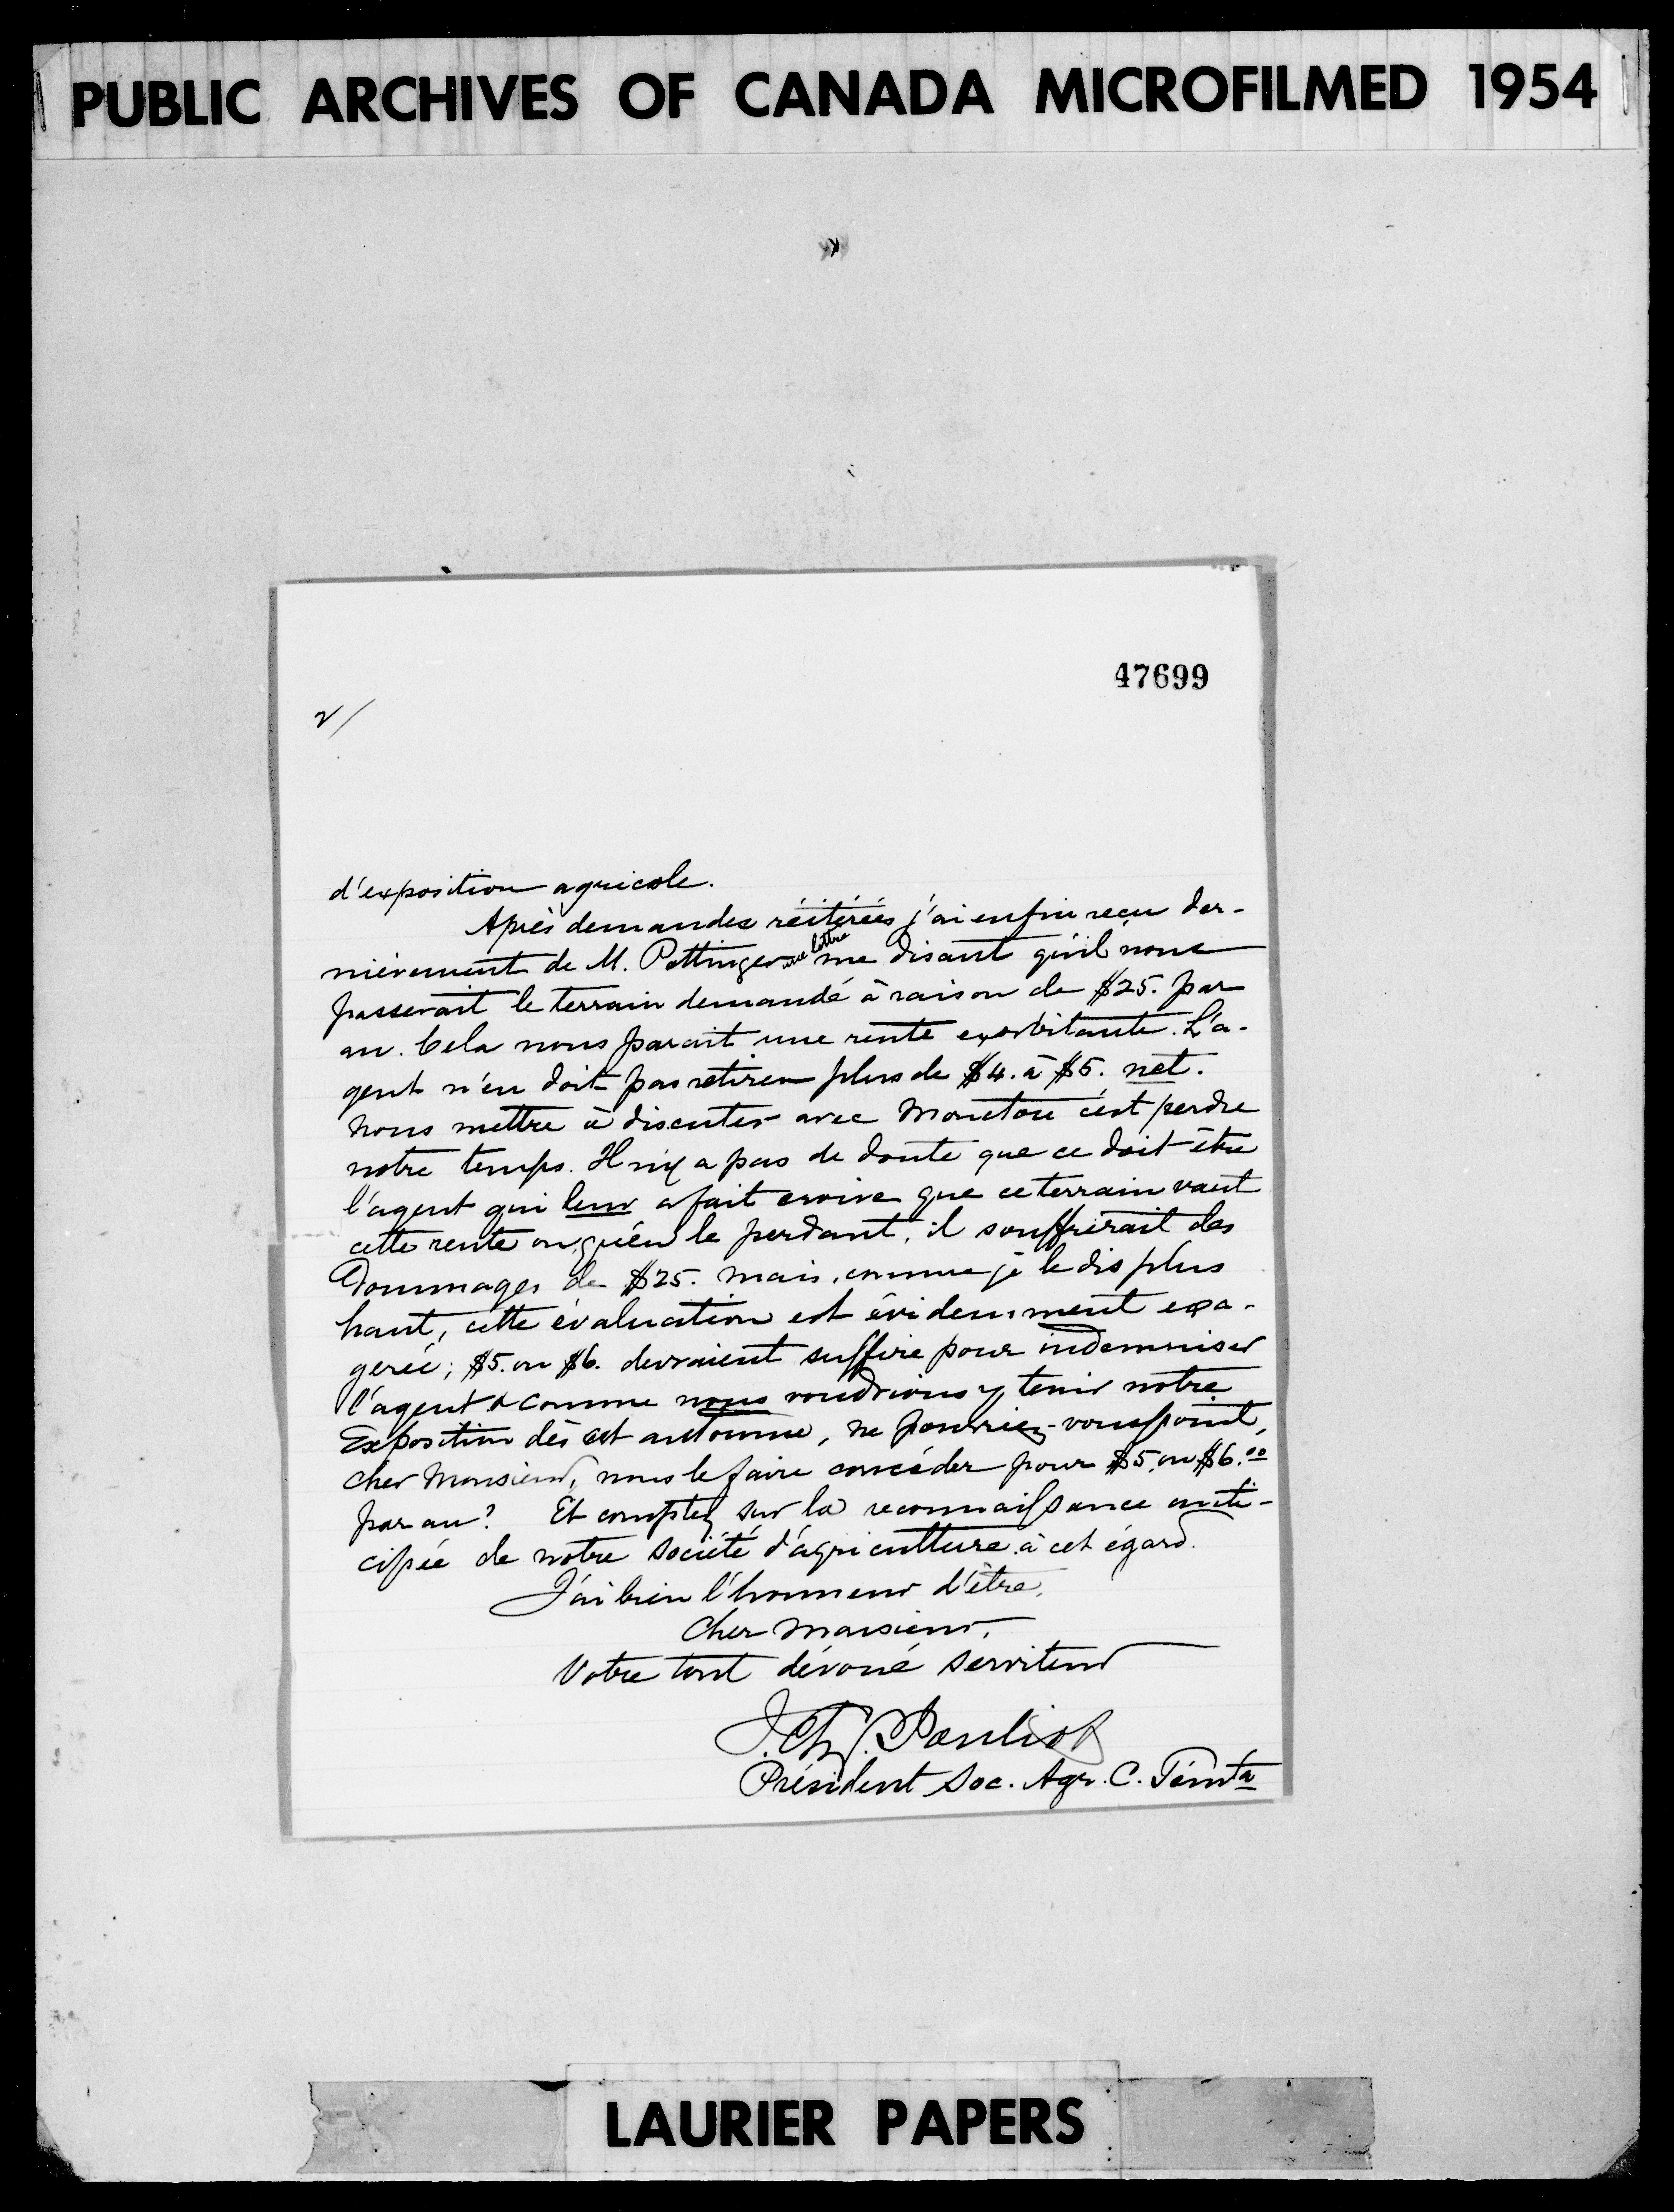 PUBLIC ARCHIVES OF CANADA MICROFILMED 1954
47699
2/
d'exposition agricole.
Après demandes réitérées j'ai enfin reçu der-
nièrement de M. Pottinger une lettre me disant qu'il nous
passerait le terrain demandé à raison de $25. par
an. Cela nous parait une rente exorbitante. L'a-
gent n'en doit pas retirer plus de $4. à $5. net.
Nous mettre à discuter avec Moncton c'est perdre
notre temps. Il n'y a pas de doute que ce doit être
l'agent qui leur a fait croire que ce terrain vaut
cette rente ou qu'en le perdant, il souffrirait des
dommages de $25. Mais, comme je le dis plus
haut, cette évaluation est évidemment exa-
gérée; $5. ou $6. devraient suffire pour indemniser
l'agent & comme nous voudrions y tenir notre
Exposition dès cet automne, ne pourriez-vous point,
cher Monsieur, nous le faire concéder pour $5. ou $6.00
par an? Et comptez sur la reconnaissance anti-
cipée de notre société d'agriculture à cet égard.
J'ai bien l'honneur d'être,
Cher Monsieur,
Votre tout dévoué serviteur
J. Chs. Pouliot
Président Soc. Agr. C. Témta
LAURIER PAPERS